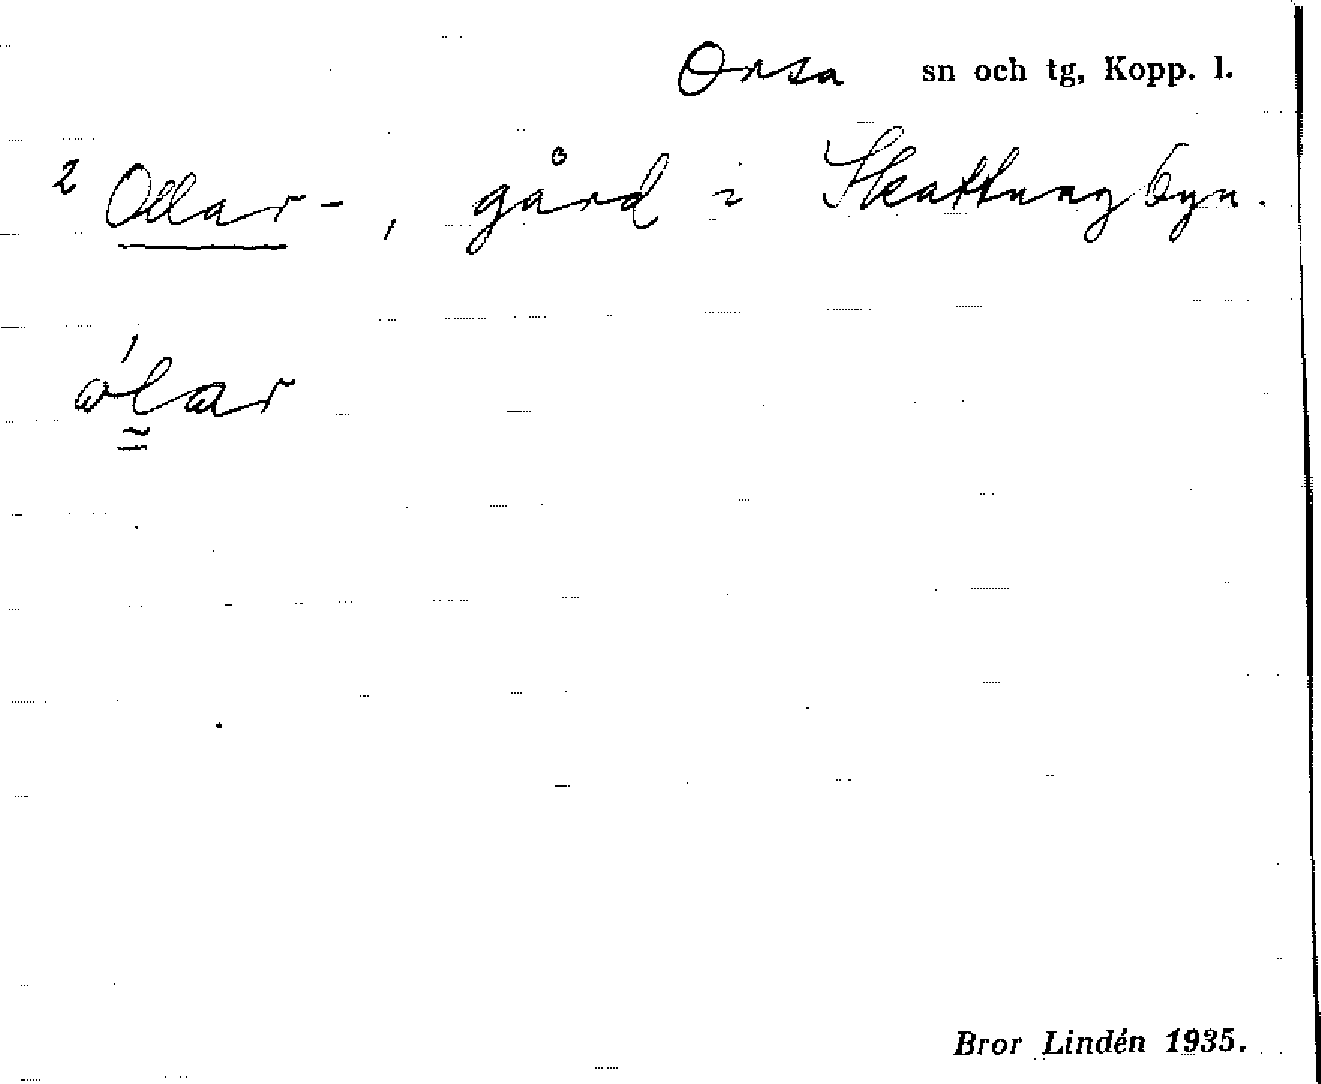 Orsa sn och tg, Kopp. l.
2 Ollar-, gård i Skattungbyn.
ólar
Bror Lindén 1935.